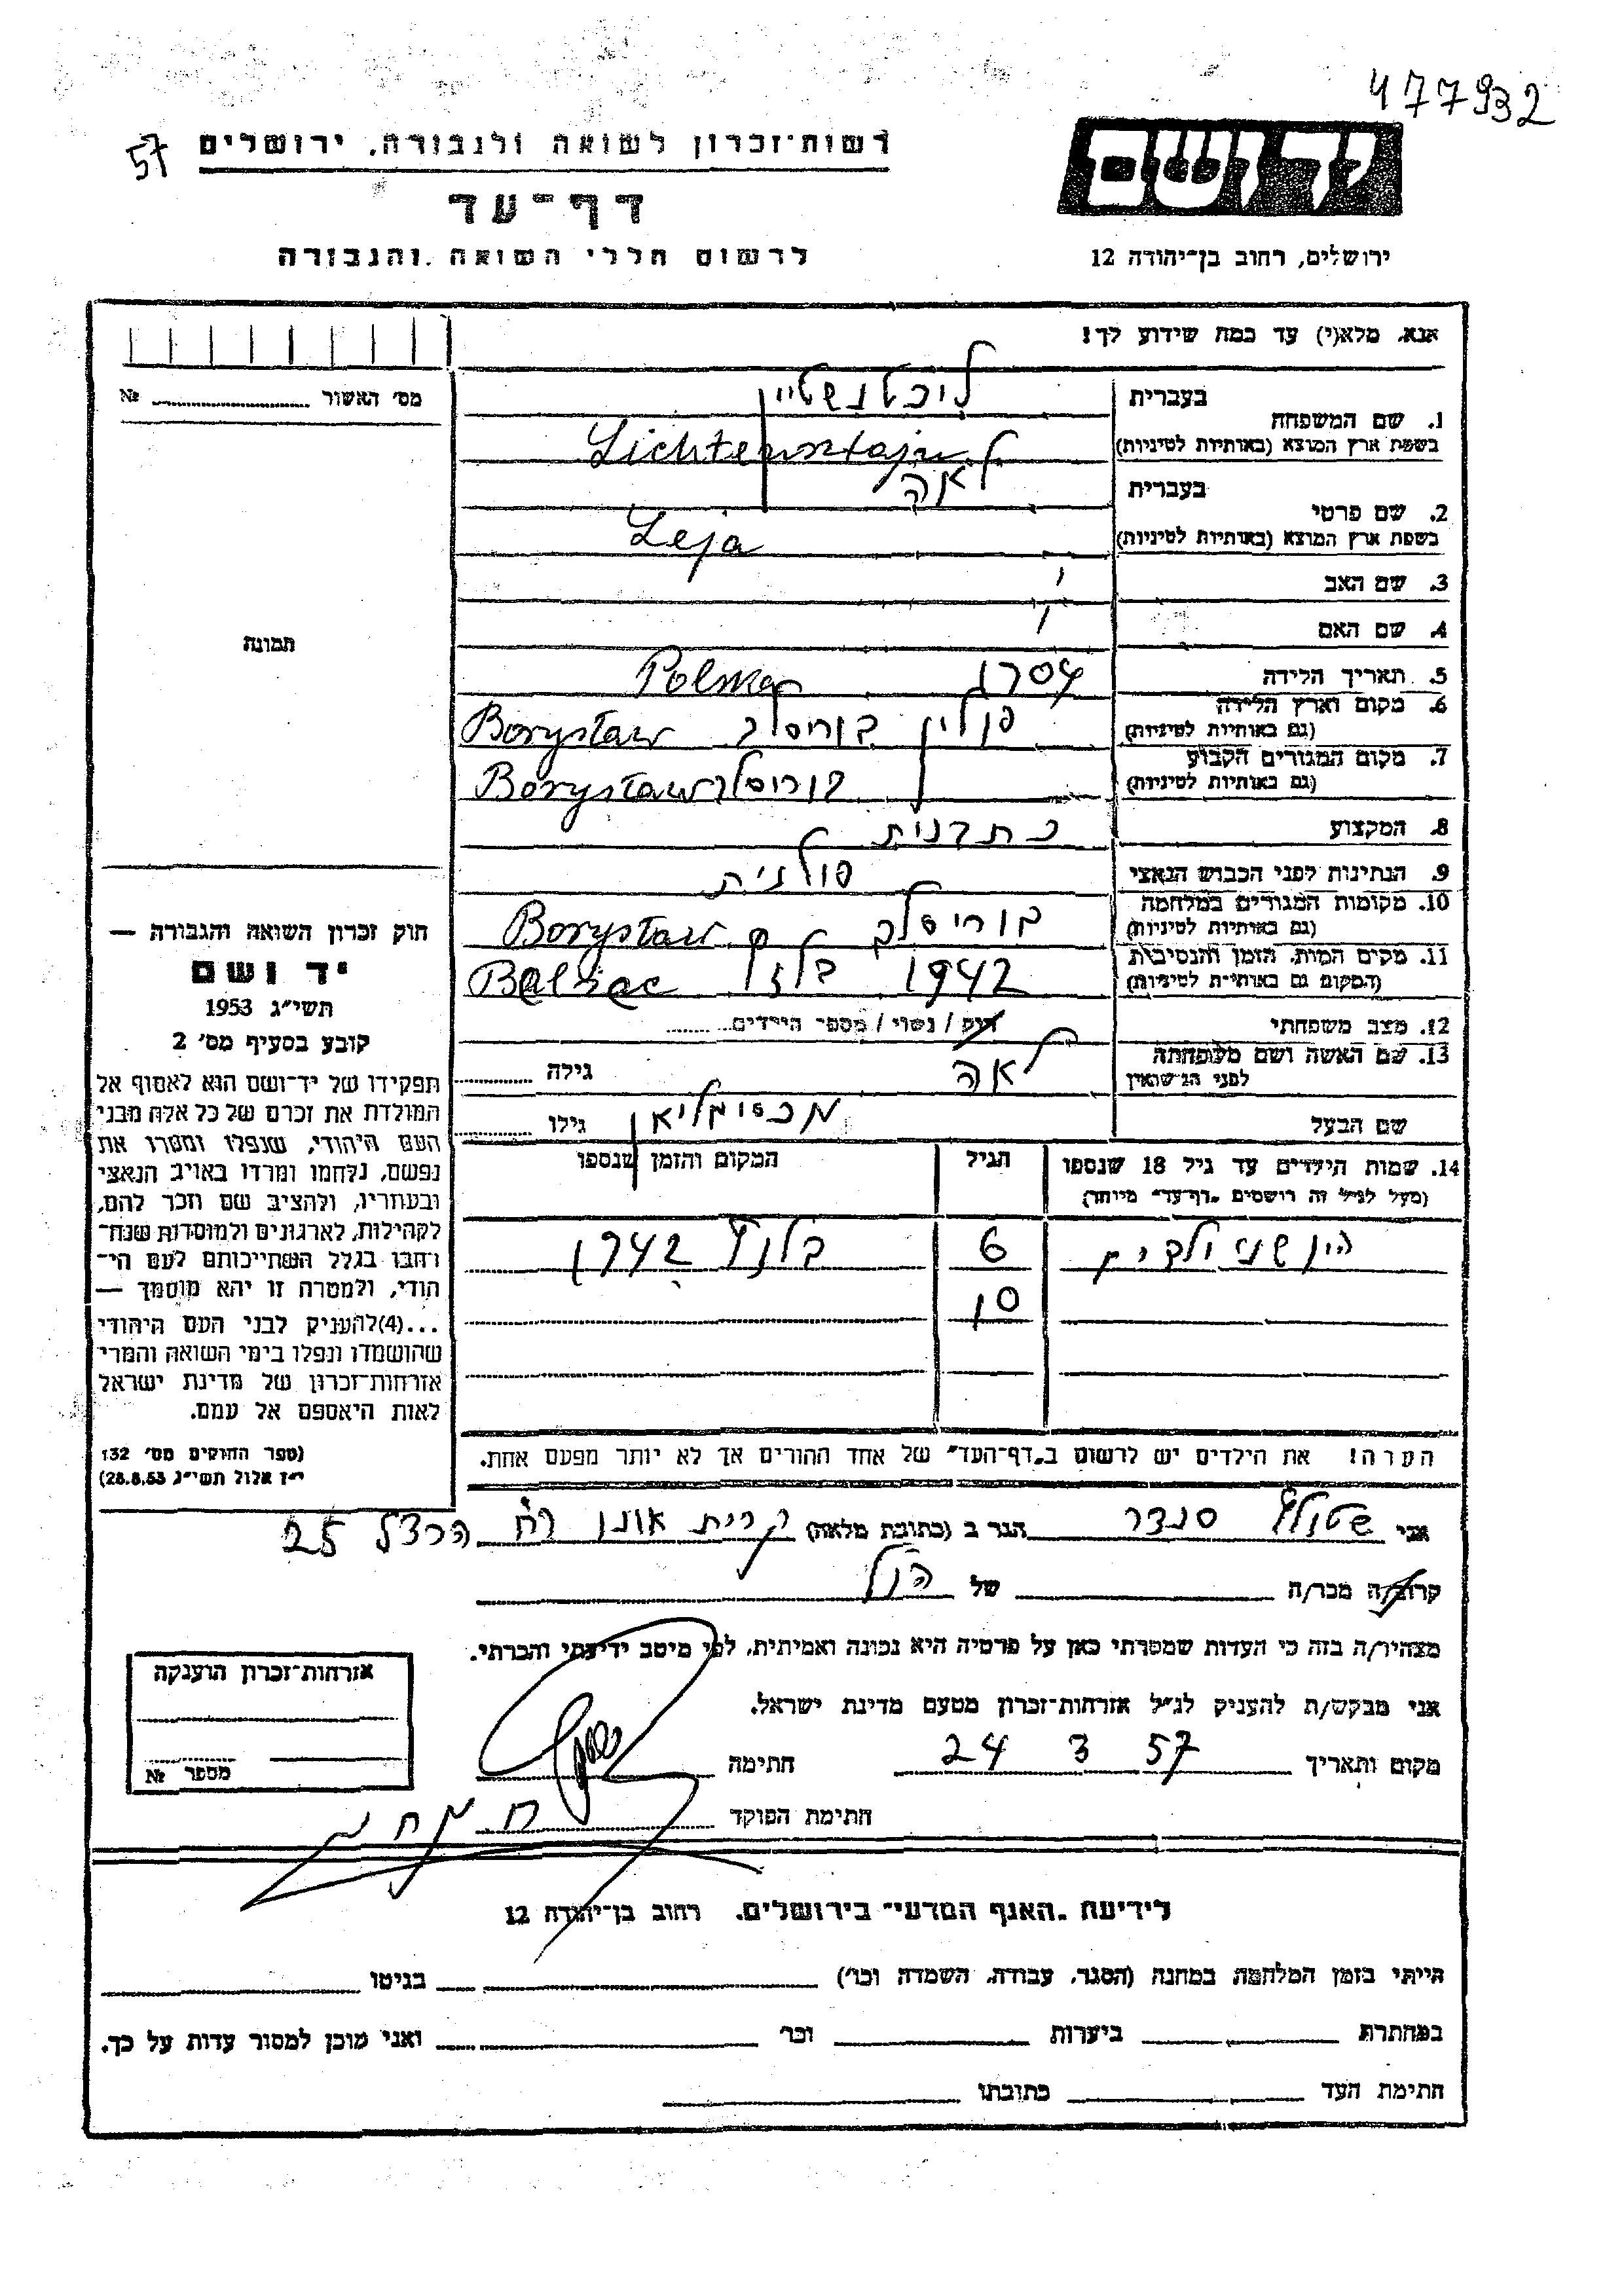 477932
רשות־זכרון לשואה ולגבורה, ירושלים
57
דף־עד
לרשום חללי השואה והגבורה
ידושם
ירושלים, רחוב בן־יהודה 12
אנא, מלא(י) עד כמה שידוע לך!
מס' האשור № 
1. שם המשפחה בעברית ליכטנשטיין
בשפת ארץ המוצא (באותיות לטיניות) Lichtensztajn
2. שם פרטי בעברית לאה
בשפת ארץ המוצא (באותיות לטיניות) Leja
3. שם האב
4. שם האם
תמונה
5. תאריך הלידה 1904
6. מקום וארץ הלידה (גם באותיות לטיניות) פולין בוריסלב Borysław Polska
7. מקום המגורים הקבוע (גם באותיות לטיניות) בוריסלב Borysław
8. המקצוע
9. הנתינות לפני הכבוש הנאצי פולנית
10. מקומות המגורים במלחמה (גם באותיות לטיניות) בוריסלב Borysław
11. מקום המות, הזמן והנסיבות (המקום גם באותיות לטיניות) 1942
12. מצב משפחתי רווק / נשוי / מספר הילדים
13. שם האשה ושם משפחתה לפני הנשואין לאה גילה
שם הבעל מכסימליאן גילו
14. שמות הילדים עד גיל 18 שנספו (מעל לגיל זה רושמים "דף־עד" מיוחד) הגיל המקום והזמן שנספו
שני ילדים 6 1942
10
הערה! את הילדים יש לרשום ב"דף־העד" של אחד ההורים אך לא יותר מפעם אחת.
חוק זכרון השואה והגבורה —
יד ושם
תשי"ג 1953
קובע בסעיף מס' 2
תפקידו של יד־ושם הוא לאסוף אל
המולדת את זכרם של כל אלה מבני
העם היהודי, שנפלו ומסרו את
נפשם, נלחמו ומרדו באויב הנאצי
ובעוזריו, ולהציב שם וזכר להם,
לקהילות, לארגונים ולמוסדות שנח־
רבו בגלל השתייכותם לעם הי־
הודי, ולמטרה זו יהא מוסמך —
...(4)להעניק לבני העם היהודי
שהושמדו ונפלו בימי השואה והמרי
אזרחות־זכרון של מדינת ישראל
לאות היאספם אל עמם.
(ספר החוקים מס' 132
י"ז אלול תשי"ג 28.8.53)
אני סנדר הגר ב (כתובת מלאה) קרית אונו רח הרצל 25
קרוב/ה מכר/ה של הנ"ל
מצהיר/ה בזה כי העדות שמסרתי כאן על פרטיה היא נכונה ואמיתית, לפי מיטב ידיעתי והכרתי.
אני מבקש/ת להעניק לנ"ל אזרחות־זכרון מטעם מדינת ישראל.
מקום ותאריך 24 3 57 חתימה
חתימת הפוקד
אזרחות־זכרון הוענקה
מספר №
לידיעת "האגף המדעי" בירושלים, רחוב בן־יהודה 12
הייתי בזמן המלחמה במחנה (הסגר, עבודה, השמדה וכו') בגיטו
במחתרת ביערות וכו' ואני מוכן למסור עדות על כך.
חתימת העד כתובתו